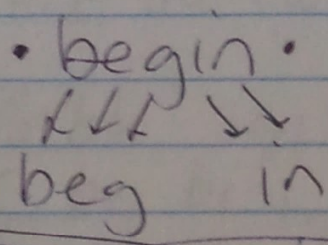 • begin •
beg in